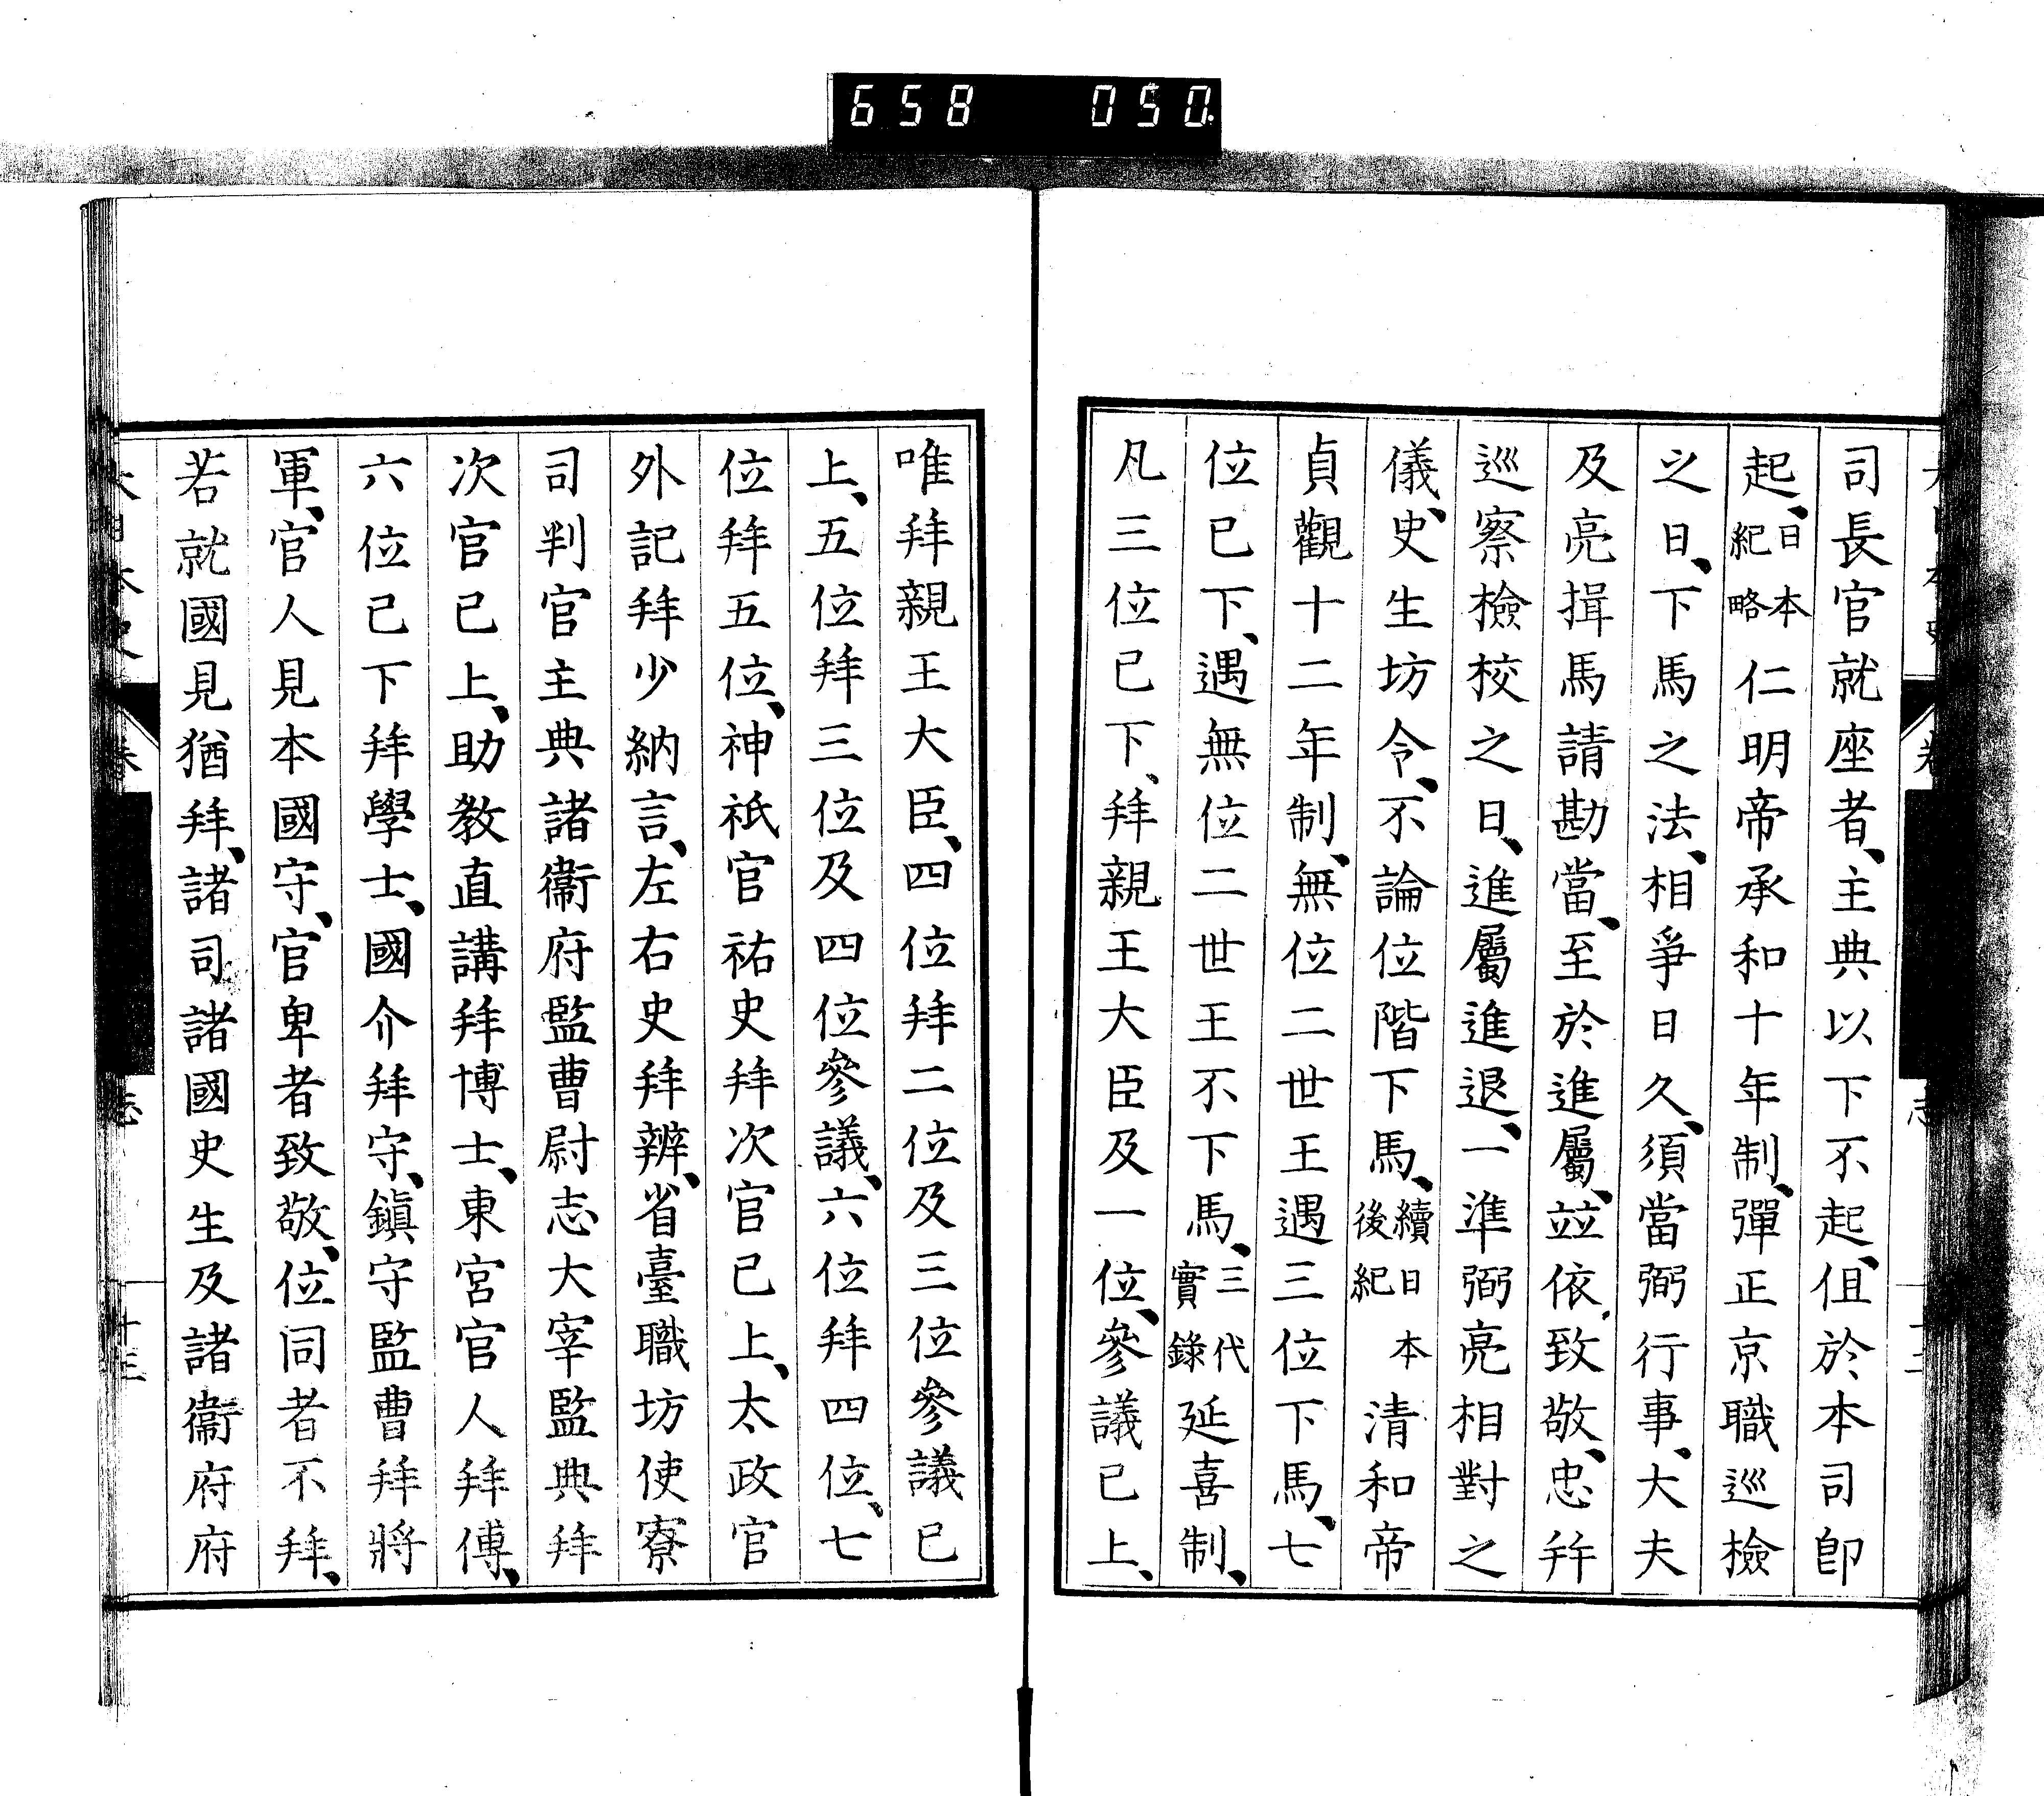 658 050
司長官就座者、主典以下不起、伹於本司卽
起、日本紀略仁明帝承和十年制、彈正京職巡檢
之日、下馬之法、相爭日久、須當弼行事、大夫
及亮揖馬請勘當、至於進屬、竝依致敬、忠幷
巡察檢校之日、進屬進退、一準弼亮相對之
儀、史生坊令、不論位階下馬、續日本後紀清和帝
貞觀十二年制、無位二世王遇三位下馬、七
位已下、遇無位二世王不下馬、三代實錄延喜制、
凡三位已下、拜親王大臣及一位、參議已上、
唯拜親王大臣、四位拜二位及三位參議已
上、五位拜三位及四位參議、六位拜四位、七
位拜五位、神祇官祐史拜次官已上、太政官
外記拜少納言、左右史拜辨、省臺職坊使寮
司判官主典諸衞府監曹尉志大宰監典拜
次官已上、助敎直講拜博士、東宮官人拜傅、
六位已下拜學士、國介拜守、鎭守監曹拜將
軍、官人見本國守、官卑者致敬、位同者不拜、
若就國見猶拜、諸司諸國史生及諸衞府府